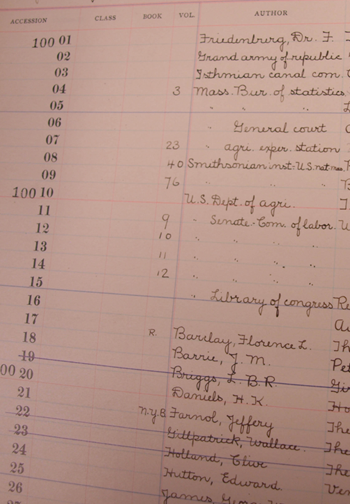 ACCESSION CLASS BOOK VOL. AUTHOR
100 01 Friedenburg, Dr. F.
02 Grand army of republic
03 Isthmian canal com.
04 3 Mass. Bur. of statistics
05 " "
06 " General court
07 23 " agri. exper. station
08 40 Smithsonian inst. U.S. nat. mus.
09 76 " "
100 10 U.S. Dept. of agri.
11 9 " Senate-Com. of labor.
12 10 " "
13 11 " "
14 12 " "
15
16 " Library of congress
17
18 R Barclay, Florence L. Th
19 Barrie, J. M. Pet
00 20 Briggs, L. B. R.
21 Daniels, H. K. Ho
22 Farnol, Jeffery The
23 Gillpatrick, Wallace. The
24 Holland, Clive The
25 Hutton, Edward Ven
26 James